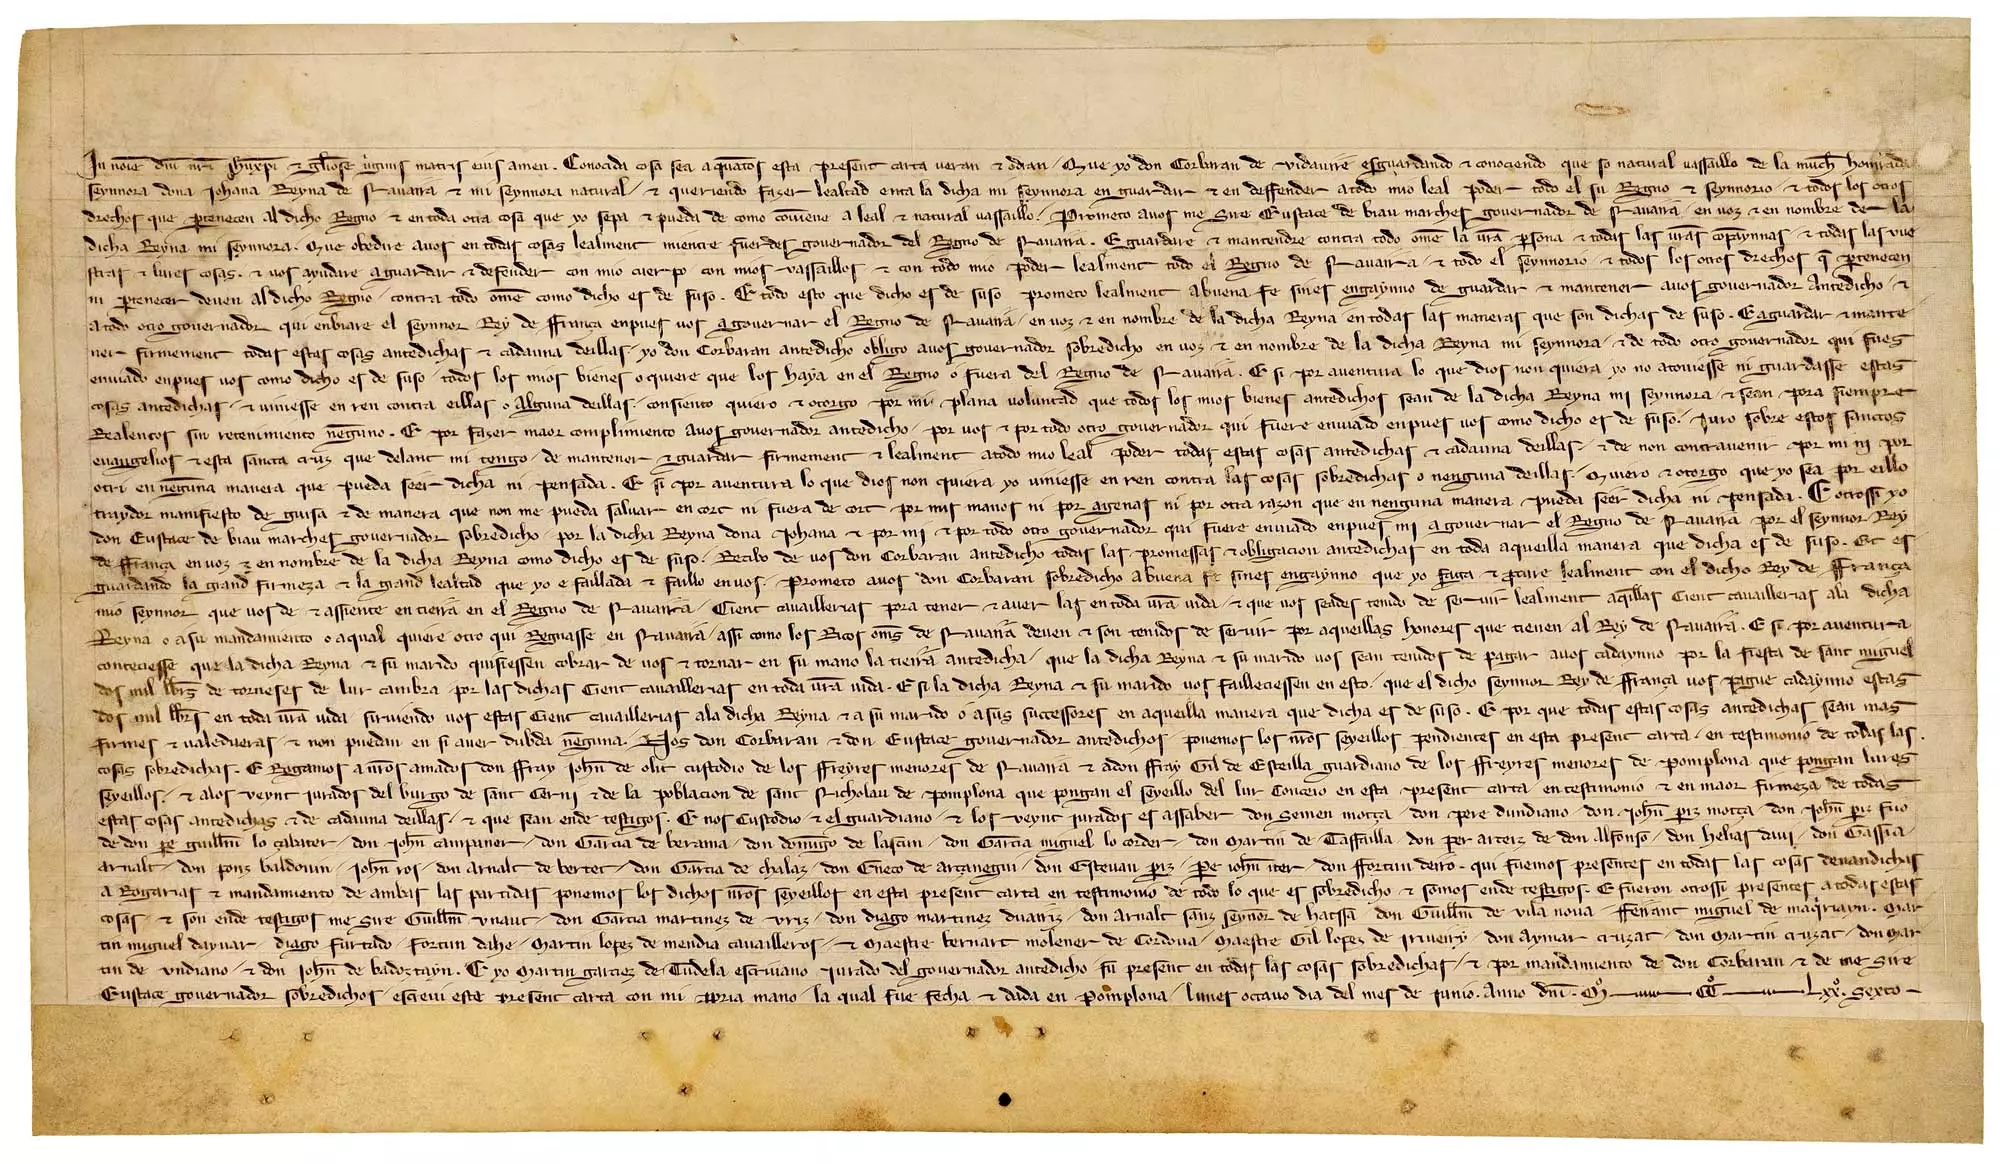 In noie dni nri ihuxpi & gliose uirginis matris eius amen. Conocida cosa sea a quantos esta present carta veran & odran. Que yo don Corbaran de Vidaurre esguardando & conociendo que so natural vassaillo de la much honrrada
seynnora dona Johana Reyna de Nauarra & mi seynnora natural, & queriendo fazer lealtad enta la dicha mi seynnora en guardar & en deffender a todo mio leal poder todo el su Regno & seynnorio & todos los otros
drechos que pertenecen al dicho Regno & en toda otra cosa que yo sepa & pueda de como conuiene a leal & natural vassaillo. Prometo a uos me Sire Eustace de biau marches gouernador de Nauarra, en uoz & en nombre de la
dicha Reyna mi seynnora. Que obedire a uos en todas cosas lealment mientre fueredes gouernador del Regno de Nauarra. E guardare & mantendre contra todo ome la ura persona & todas las uras compaynnas & todas las vue
stras & lures cosas. & uos ayudare a guardar & defender con mio cuerpo, con mios vassaillos & con todo mio poder lealment todo el Regno de Nauarra, & todo el seynnorio & todos los otros drechos que pertenecen
ni pertenecer deuen al dicho Regno, contra todo ome como dicho es de suso. E todo esto que dicho es de suso prometo lealment a buena fe sines engaynno de guardar & mantener a uos gouernador antedicho, &
a todo otro gouernador qui enbiare el seynnor Rey de ffrança enpues uos a gouernar el Regno de Nauarra, en uoz & en nombre de la dicha Reyna en todas las maneras que son dichas de suso. E a guardar & mante
ner firmement todas estas cosas antedichas & cadauna deillas, yo don Corbaran antedicho obligo a uos gouernador sobredicho en uoz & en nombre de la dicha Reyna mi seynnora, & de todo otro gouernador qui fues
enuiado enpues uos como dicho es de suso, todos los mios bienes o quiere que los haya en el Regno o fuera del Regno de Nauarra. E si por auentura lo que dios non quiera yo no atouiesse ni guardasse estas
cosas antedichas, & viniesse en ren contra eillas o alguna deillas, consiento quiero & otorgo por mi plana voluntad que todos los mios bienes antedichos sean de la dicha Reyna mi seynnora, & sean pora siempre
Realencos sin retenimiento neguno. E por fazer maor complimiento a uos gouernador antedicho, por uos & por todo otro gouernador qui fuere enuiado enpues uos como dicho es de suso. Juro sobre estos sanctos
euangelios & esta sancta cruz que delant mi tengo, de mantener & guardar firmement & lealment a todo mio leal poder todas estas cosas antedichas & cadauna deillas, & de non contrauenir por mi ni por
otri en neguna manera que pueda seer dicha ni pensada. E si por auentura lo que dios non quiera yo viniesse en ren contra las cosas sobredichas o nenguna deillas. Quiero & otorgo que yo sea por eillo
traydor manifiesto de guisa & de manera que non me pueda saluar en cort ni fuera de cort por mis manos ni por agenas ni por otra razon que en nenguna manera pueda seer dicha ni pensada. E otrossi yo
don Eustace de biau marches gouernador sobredicho, por la dicha Reyna dona Johana & por mi & por todo otro gouernador qui fuere enuiado enpues mi a gouernar el Regno de Nauarra por el seynnor Rey
de ffrança en uoz & en nombre de la dicha Reyna como dicho es de suso. Recibo de uos don Corbaran antedicho todas las promessas & obligacion antedichas en toda aqueilla manera que dicha es de suso. Et es
guardando la grand firmeza & la grand lealtad que yo e faillada & faillo en uos. Prometo a uos don Corbaran sobredicho a buena fe sines engaynno que yo faga & procure lealment con el dicho Rey de ffrança
mio seynnor que uos de & assiente en tierra en el Regno de Nauarra, Cient cauaillerias pora tener & auer las en toda ura vida, & que uos seades tenido de seruir lealment aqillas Cient cauaillerias a la dicha
Reyna o a su mandamiento o a qual quiere otro qui Regnasse en Nauarra, assi como los Ricos oms de Nauarra deuen & son tenidos de seruir por aqueillas honores que tienen al Rey de Nauarra. E si por auentura
conteciesse que la dicha Reyna & su marido quisiessen cobrar de uos & tornar en su mano la tierra antedicha, que la dicha Reyna & su marido uos sean tenidos de pagar a uos cadaynno por la fiesta de sant miguel
dos mil lbrs de torneses de lur cambra, por las dichas Cient cauaillerias en toda ura vida. E si la dicha Reyna & su marido uos failleciessen en esto, que el dicho seynnor Rey de ffrança uos pague cadaynno estas
dos mil lbrs en toda ura vida, siruiendo uos estas Cient cauaillerias a la dicha Reyna & a su marido o a sus successores en aqueilla manera que dicha es de suso. E por que todas estas cosas antedichas sean mas
firmes & valederas, & non puedan en si auer dubda neguna. Nos don Corbaran & don Eustace gouernador antedichos, ponemos los nros seyeillos pendientes en esta present carta, en testimonio de todas las
cosas sobredichas. E Rogamos a nros amados don ffray Johan de olit custodio de los ffreyres menores de Nauarra & a don ffray Gil de Esteilla guardiano de los ffreyres menores de Pomplona que pongan lures
seyeillos, & a los veynt jurados del burgo de sant Cerni & de la poblacion de sant Nicholau de Pomplona que pongan el seyeillo del lur Conceio en esta present carta, en testimonio & en maor firmeza de todas
estas cosas antedichas & de cadauna deillas, & que sean ende testigos. E nos Custodio & el guardiano, & los veynt jurados es assaber don Semen motça, don Pere dundiano, don Johan piz motça, don Johan piz fiio
de don pe guillem lo çabater, don Johan campaner, don Garcia de berama, don domingo de lascun, don Garcia miguel lo corder, don Martin de Taffailla, don per arceiz de don alfonso, don helias daui, don Gassia
arnalt, don ponz baldouin, Johan ros, don arnalt de bertet, don Garcia de chalaz, don Eneco de arçanegui, don Esteuan piz, Pe Johan iter, don ffortun deiro, qui fuemos presentes en todas las cosas deuandichas
a Rogarias & mandamiento de ambas las partidas ponemos los dichos nros seyeillos en esta present carta en testimonio de todo lo que es sobredicho & somos ende testigos. E fueron otrossi presentes a todas estas
cosas, & son ende testigos me Sire Guillem vnaut, don Garcia martinez de vriz, don diago martinez duarriz, don arnalt sanz seynor de hatssa, don Guillem de vila noua, fferrant miguel de Mar
tin miguel daynar, diago furtado, fortun dahe, Martin lopez de mendia cauailleros, & Maestre bernart molener de Cordoua, Maestre Gil lopez de don aymar cruzat, don Martin cruzat, don Mar
tin de vndiano, & don Johan de badoztayn. E yo Martin garceiz de Tudela escriuano jurado del gouernador antedicho fu present en todas las cosas sobredichas, & por mandamiento de don Corbaran & de me Sire
Eustace gouernador sobredichos, escreui este present carta con mi propria mano, la qual fue fecha & dada en Pomplona, lunes octauo dia del mes de junio. Anno dni. Mo CCo Lxxo. Sexto